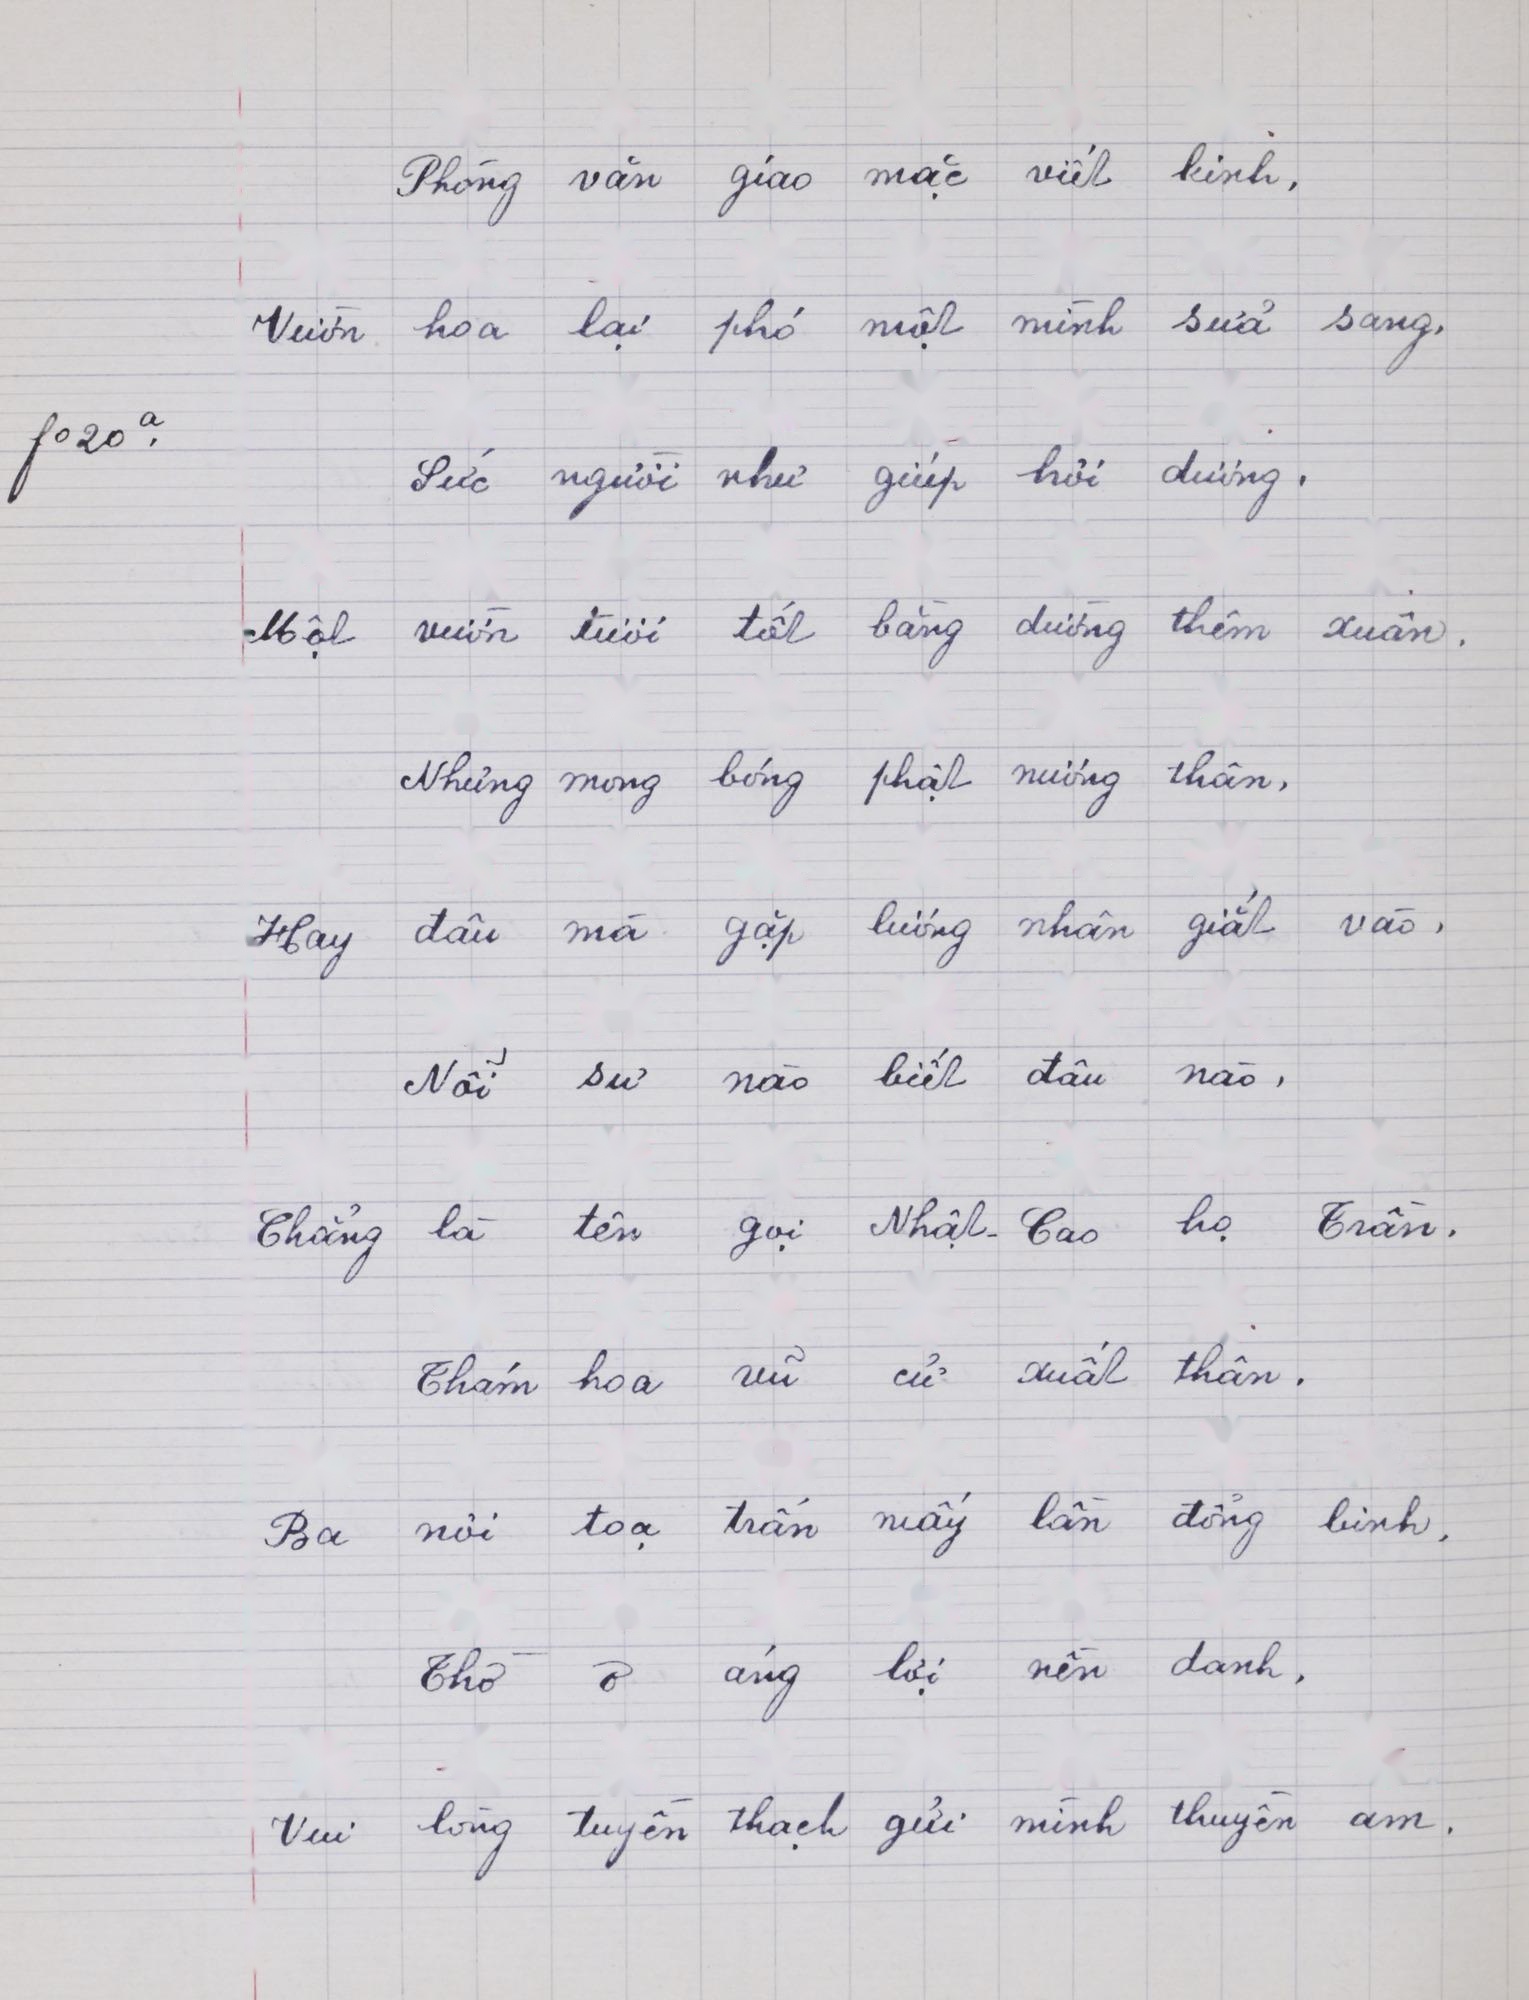 Phòng văn giao mặc viết kinh,
Vườn hoa lại phó một mình sửa sang.
fo 20a.
Sức người như giúp hơi dương,
Một vườn tươi tốt bằng dường thêm xuân.
Những mong bóng phật nương thân,
Hay đâu mà gặp lương nhân giắt vào,
Nỗi sư nào biết đâu nào,
Chẳng là tên gọi Nhật-Cao họ Trần.
Thám hoa vũ cử xuất thân.
Ba nơi toạ trấn mấy lần đổng binh,
Thờ ơ áng lợi nền danh,
Vui lòng tuyền thạch gửi mình thuyền am.